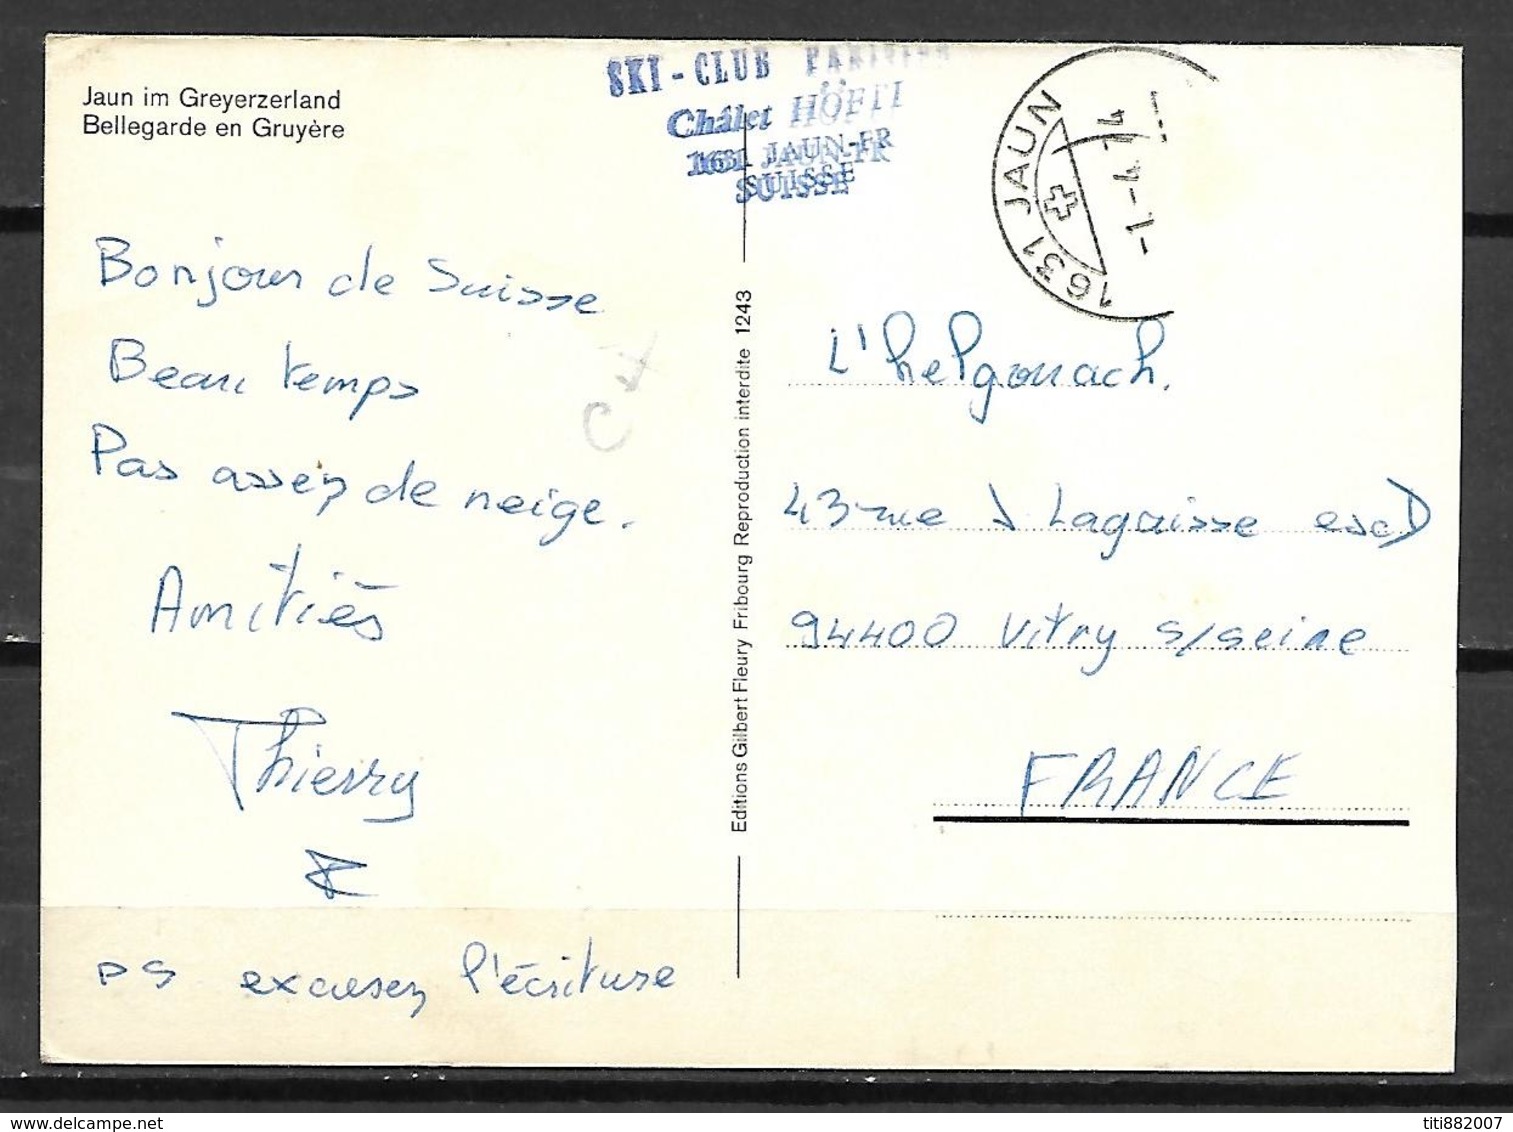 Jaun im Greyerzerland
Bellegarde en Gruyère
SKI-CLUB
Châlet HÖFLI
1631 JAUN-FR
SUISSE
1631 JAUN
-1-4-74
Bonjour de Suisse
Beau temps
Pas assez de neige.
Amitiés
Thierry
PS excusez l'écriture
Editions Gilbert Fleury Fribourg Reproduction interdite 1243
L'helgouach.
43 rue J Lagaisse esc D
94400 Vitry s/seine
FRANCE
titi882007